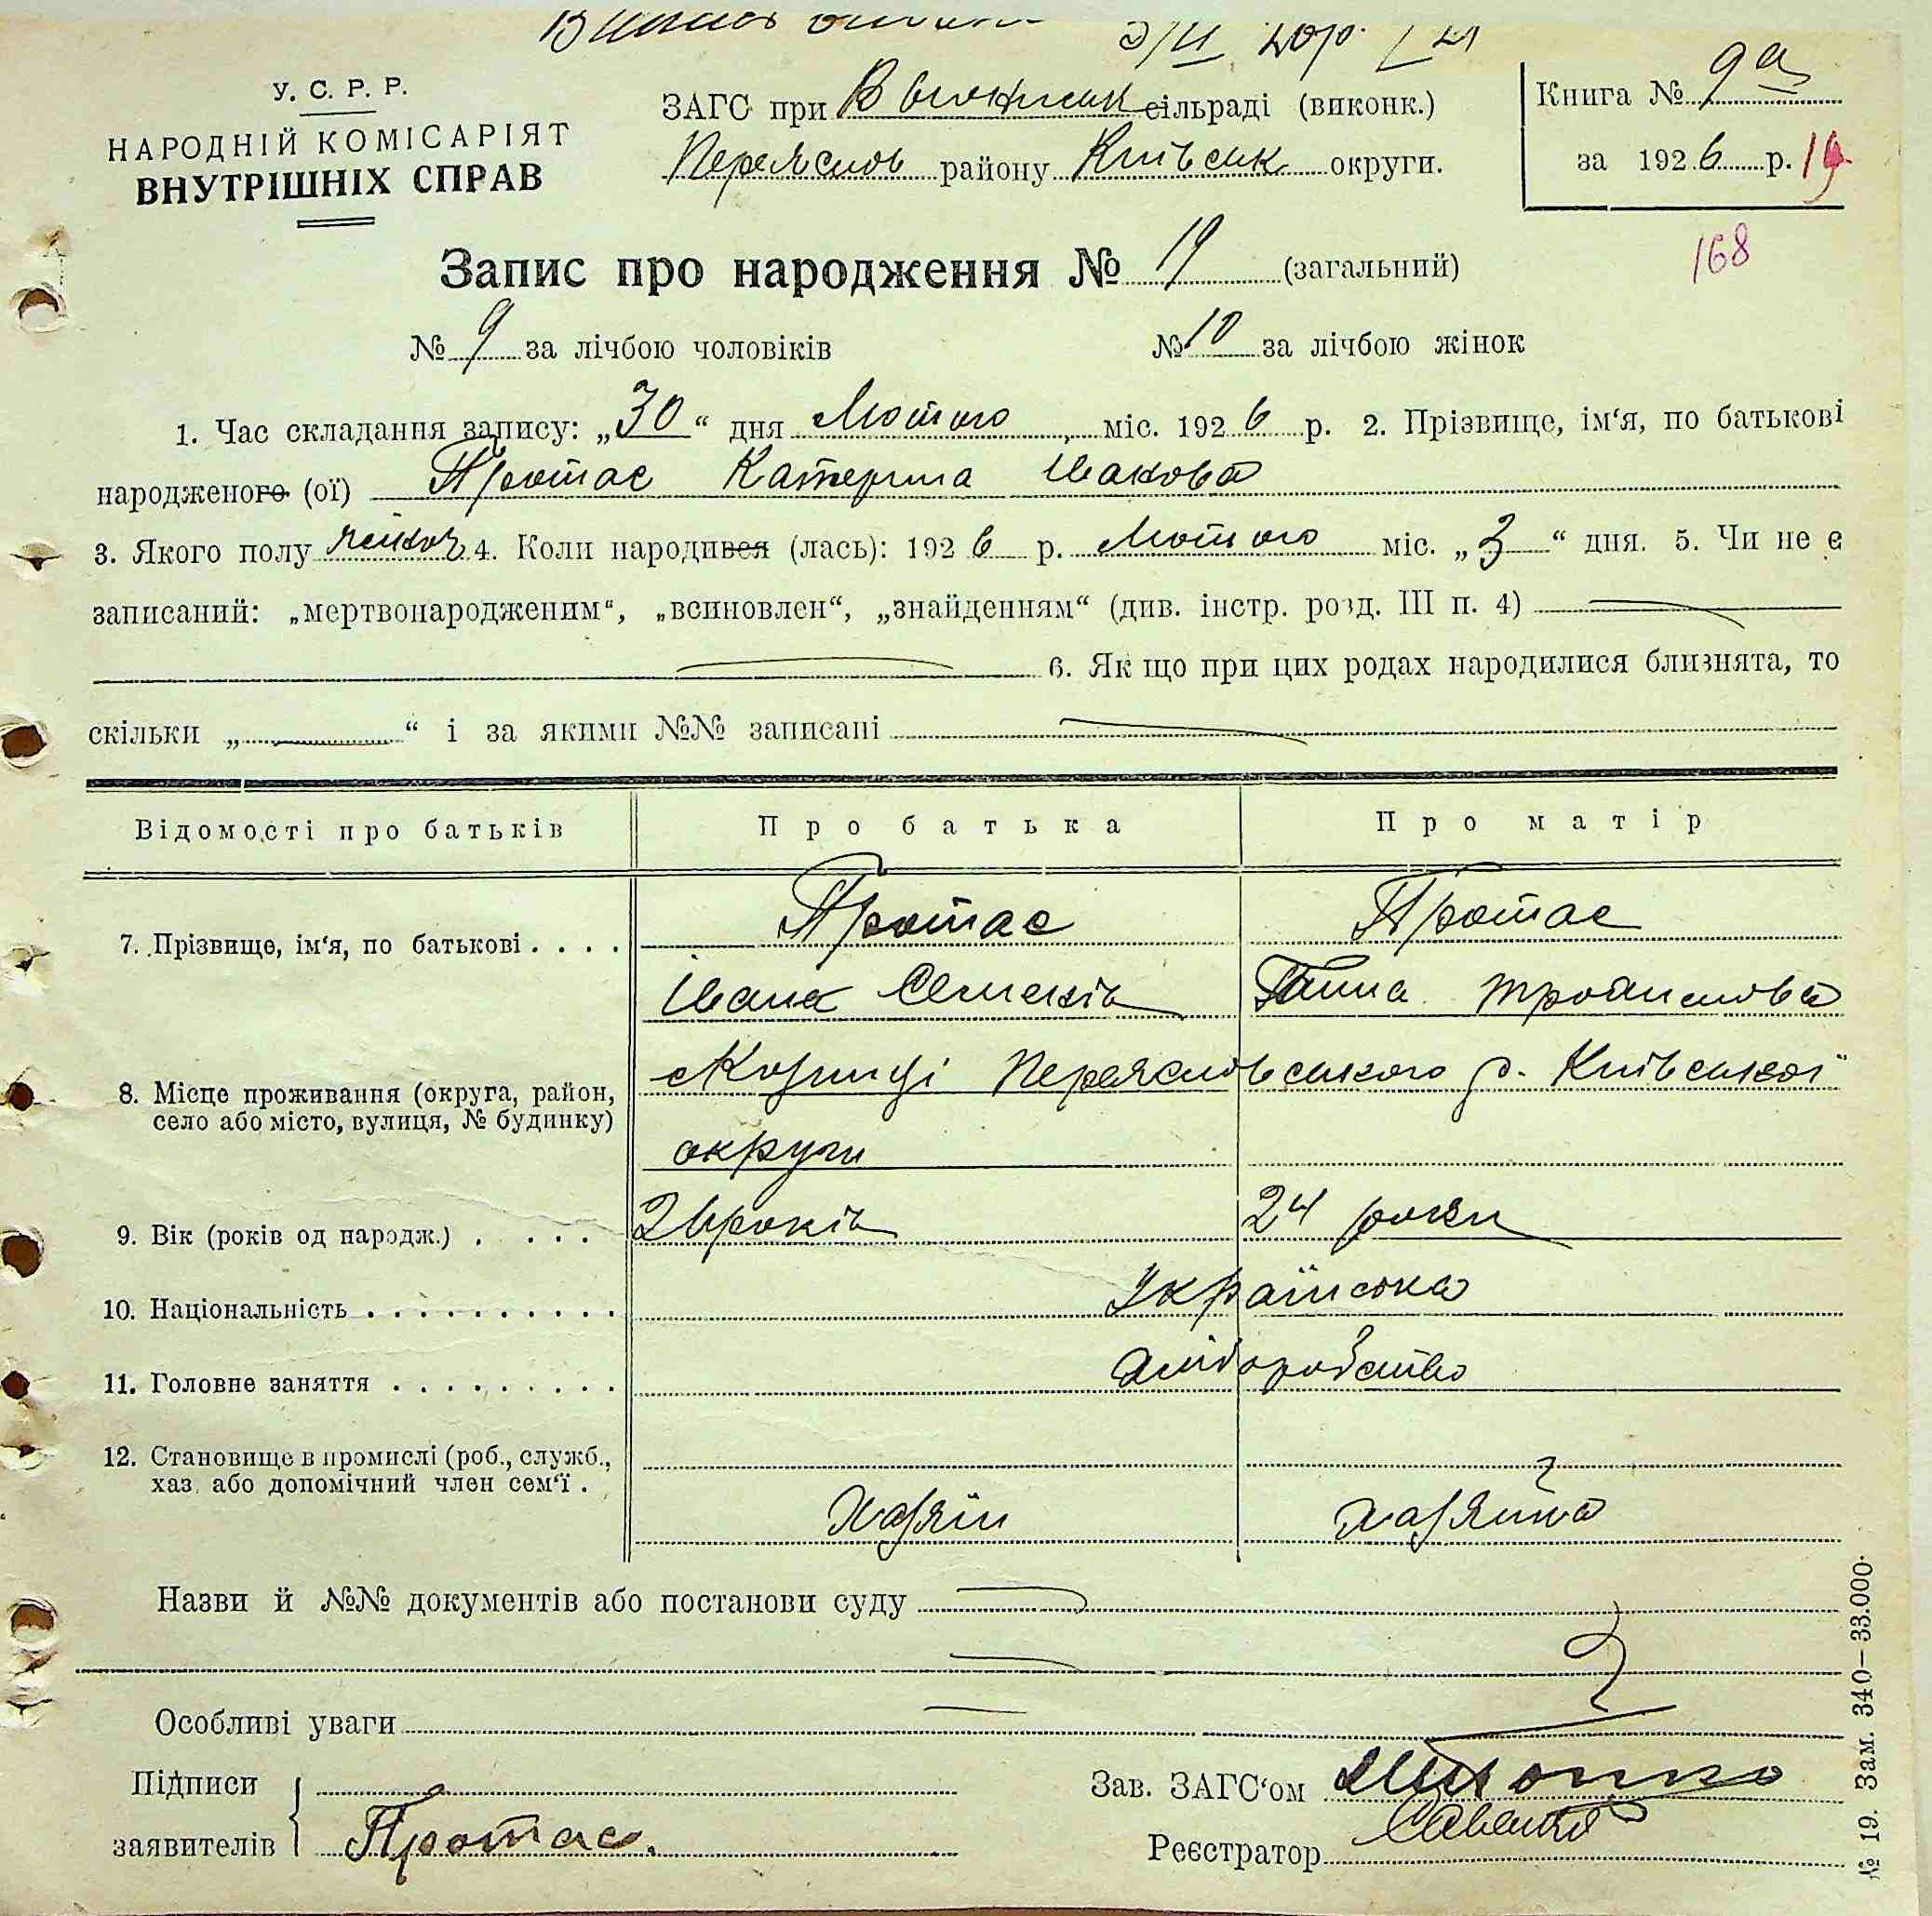 У. С. Р. Р.
НАРОДНІЙ КОМІСАРІЯТ
ВНУТРІШНІХ СПРАВ
ЗАГС при В'юнищан сільраді (виконк.)
Переяслов району Київськ округи.
Книга № 9а
за 1926 р. 19
168
Запис про народження № 19 (загальний)
№ 9 за лічбою чоловіків № 10 за лічбою жінок
1. Час складання запису: „30“ дня Лютого міс. 1926 р. 2. Прізвище, ім‘я, по батькові
народженого (ої) Протас Катерина Іванова
3. Якого полу жіноч 4. Коли народився (лась): 1926 р. Лютого міс. „3“ дня. 5. Чи не є
записаний: „мертвонародженим“, „всиновлен“, „знайденням“ (див. інстр. розд. III п. 4)
6. Як що при цих родах народилися близнята, то
скільки „ “ і за якими №№ записані
Відомості про батьків Про батька Про матір
7. Прізвище, ім‘я, по батькові . . . . Протас Протас
Іван Семенів Ганна Трохимова
8. Місце проживання (округа, район,
село або місто, вулиця, № будинку)
Козинці Переясловського р. Київської
округи
9. Вік (років од народж.) . . . . . 26 років 24 роки
10. Національність . . . . . . . . . . Українська
11. Головне заняття . . . . . . . . . хліборобство
12. Становище в промислі (роб., служб.,
хаз. або допомічний член сем‘ї .
Хазяїн хазяйка
Назви й №№ документів або постанови суду
Особливі уваги
Підписи
заявителів Протас.
Зав. ЗАГС‘ом
Реєстратор Савенко
№ 19. Зам. 340—33.000.